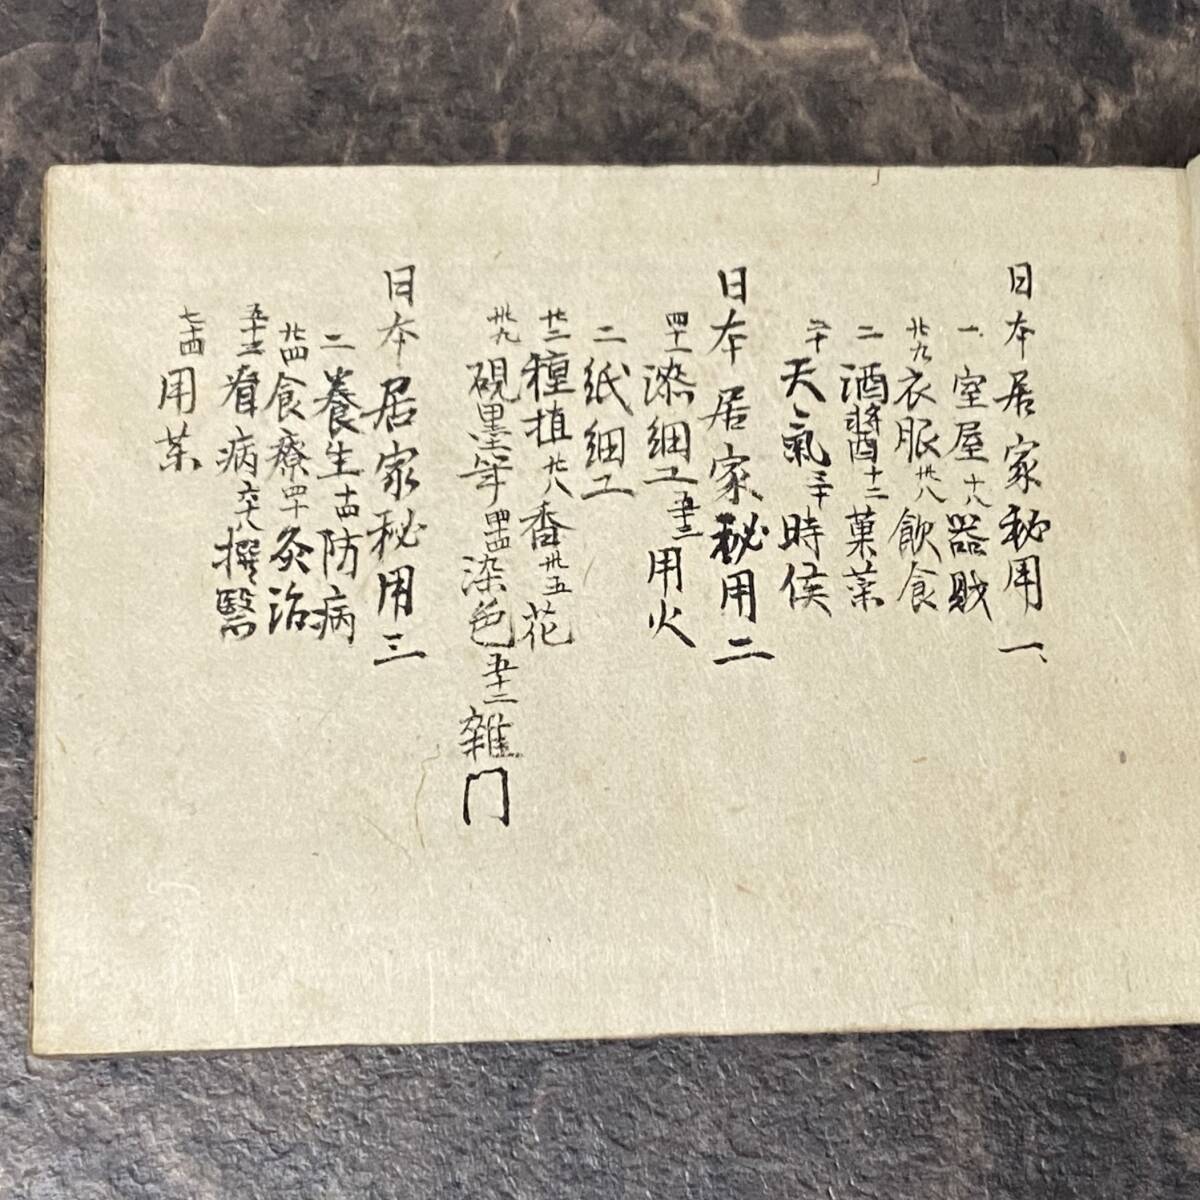 日本居家秘用一
一室屋十八器財
廿九衣服卅八飲食
二酒醬十二菓菜
二十天氣三十時候
日本居家秘用二
四十一漆細工五十二用火
二紙細工
廿二種植廿八香卅五花
卅九硯墨筆四十四染色五十二雜門
日本居家秘用三
二養生十四防病
廿四食療四十灸治
五十三看病六十八撰醫
七十四用藥